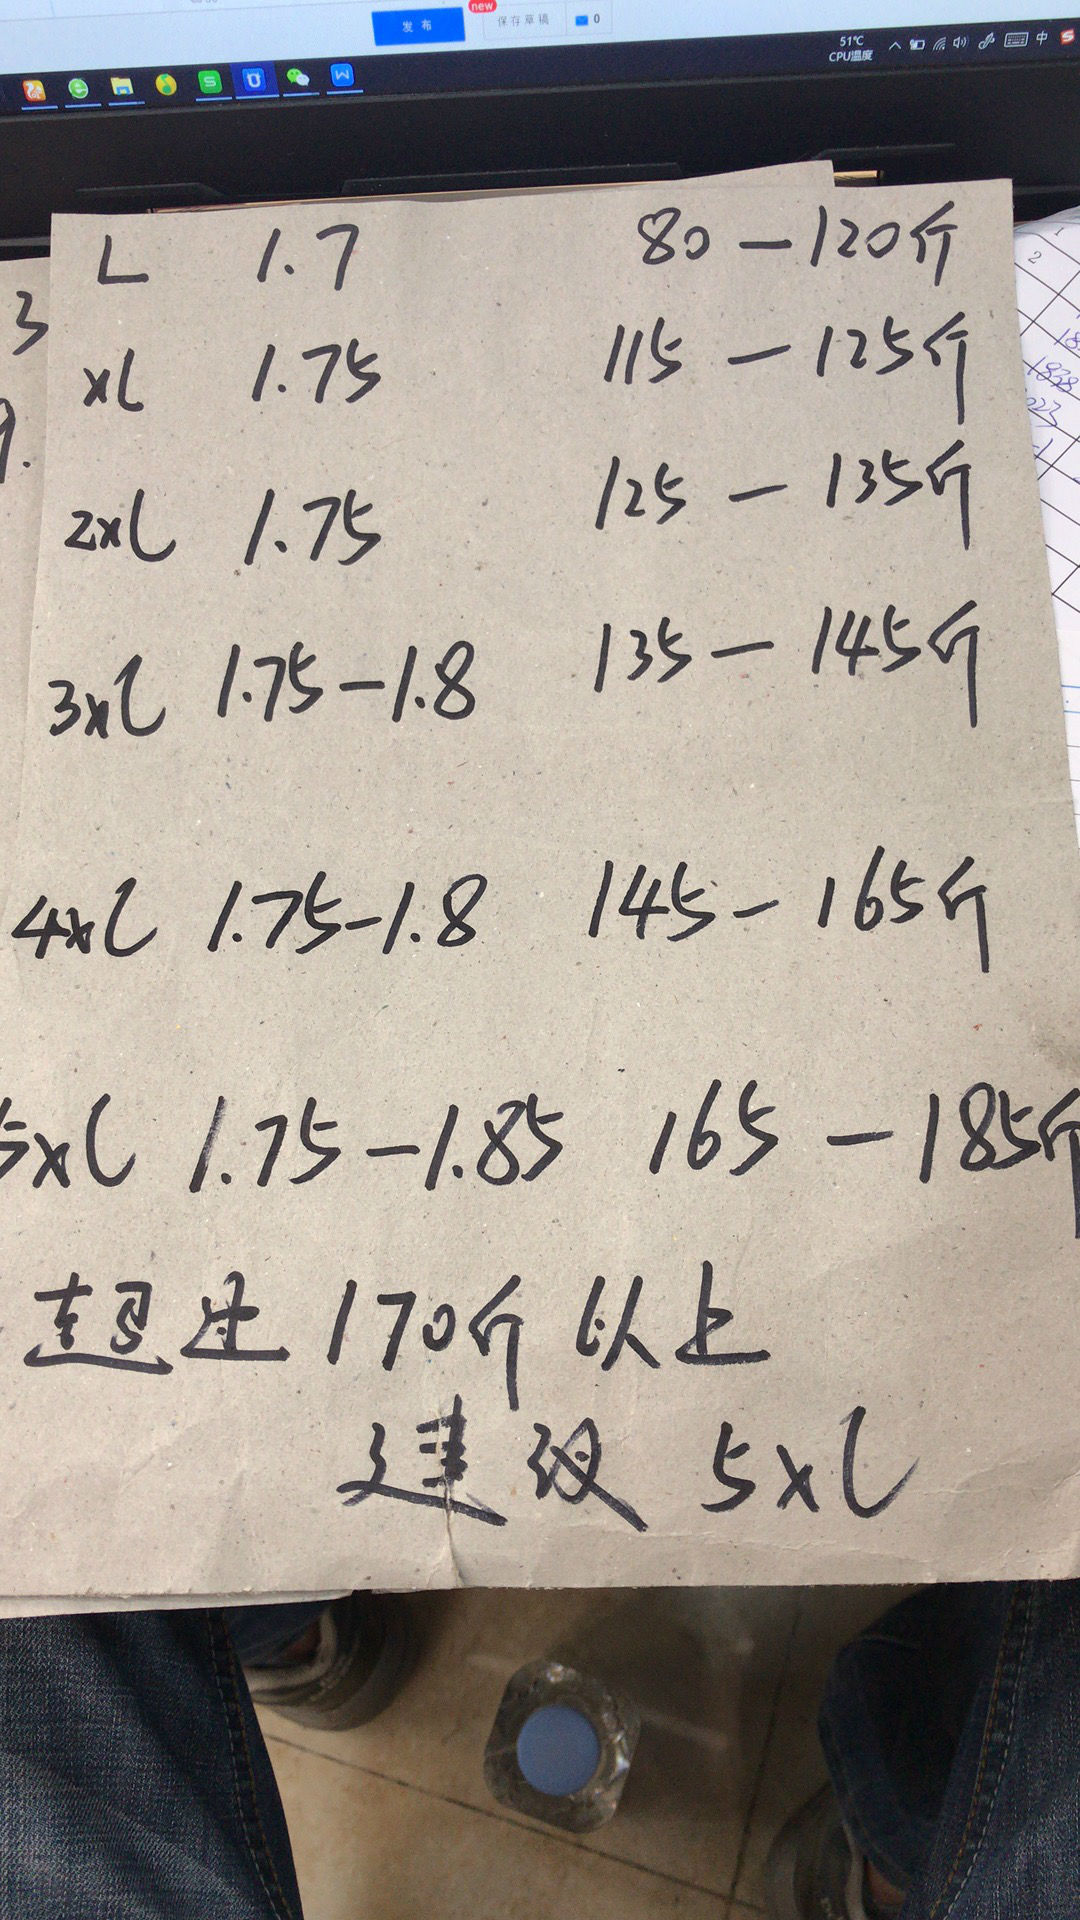 发布
new
保存草稿
0
51℃
CPU温度
中
L 1.7 80-120斤
xL 1.75 115-125斤
2xL 1.75 125-135斤
3xL 1.75-1.8 135-145斤
4xL 1.75-1.8 145-165斤
5xL 1.75-1.85 165-185斤
超过170斤以上
建议 5xL
3
9.
1
2
18
1838
023